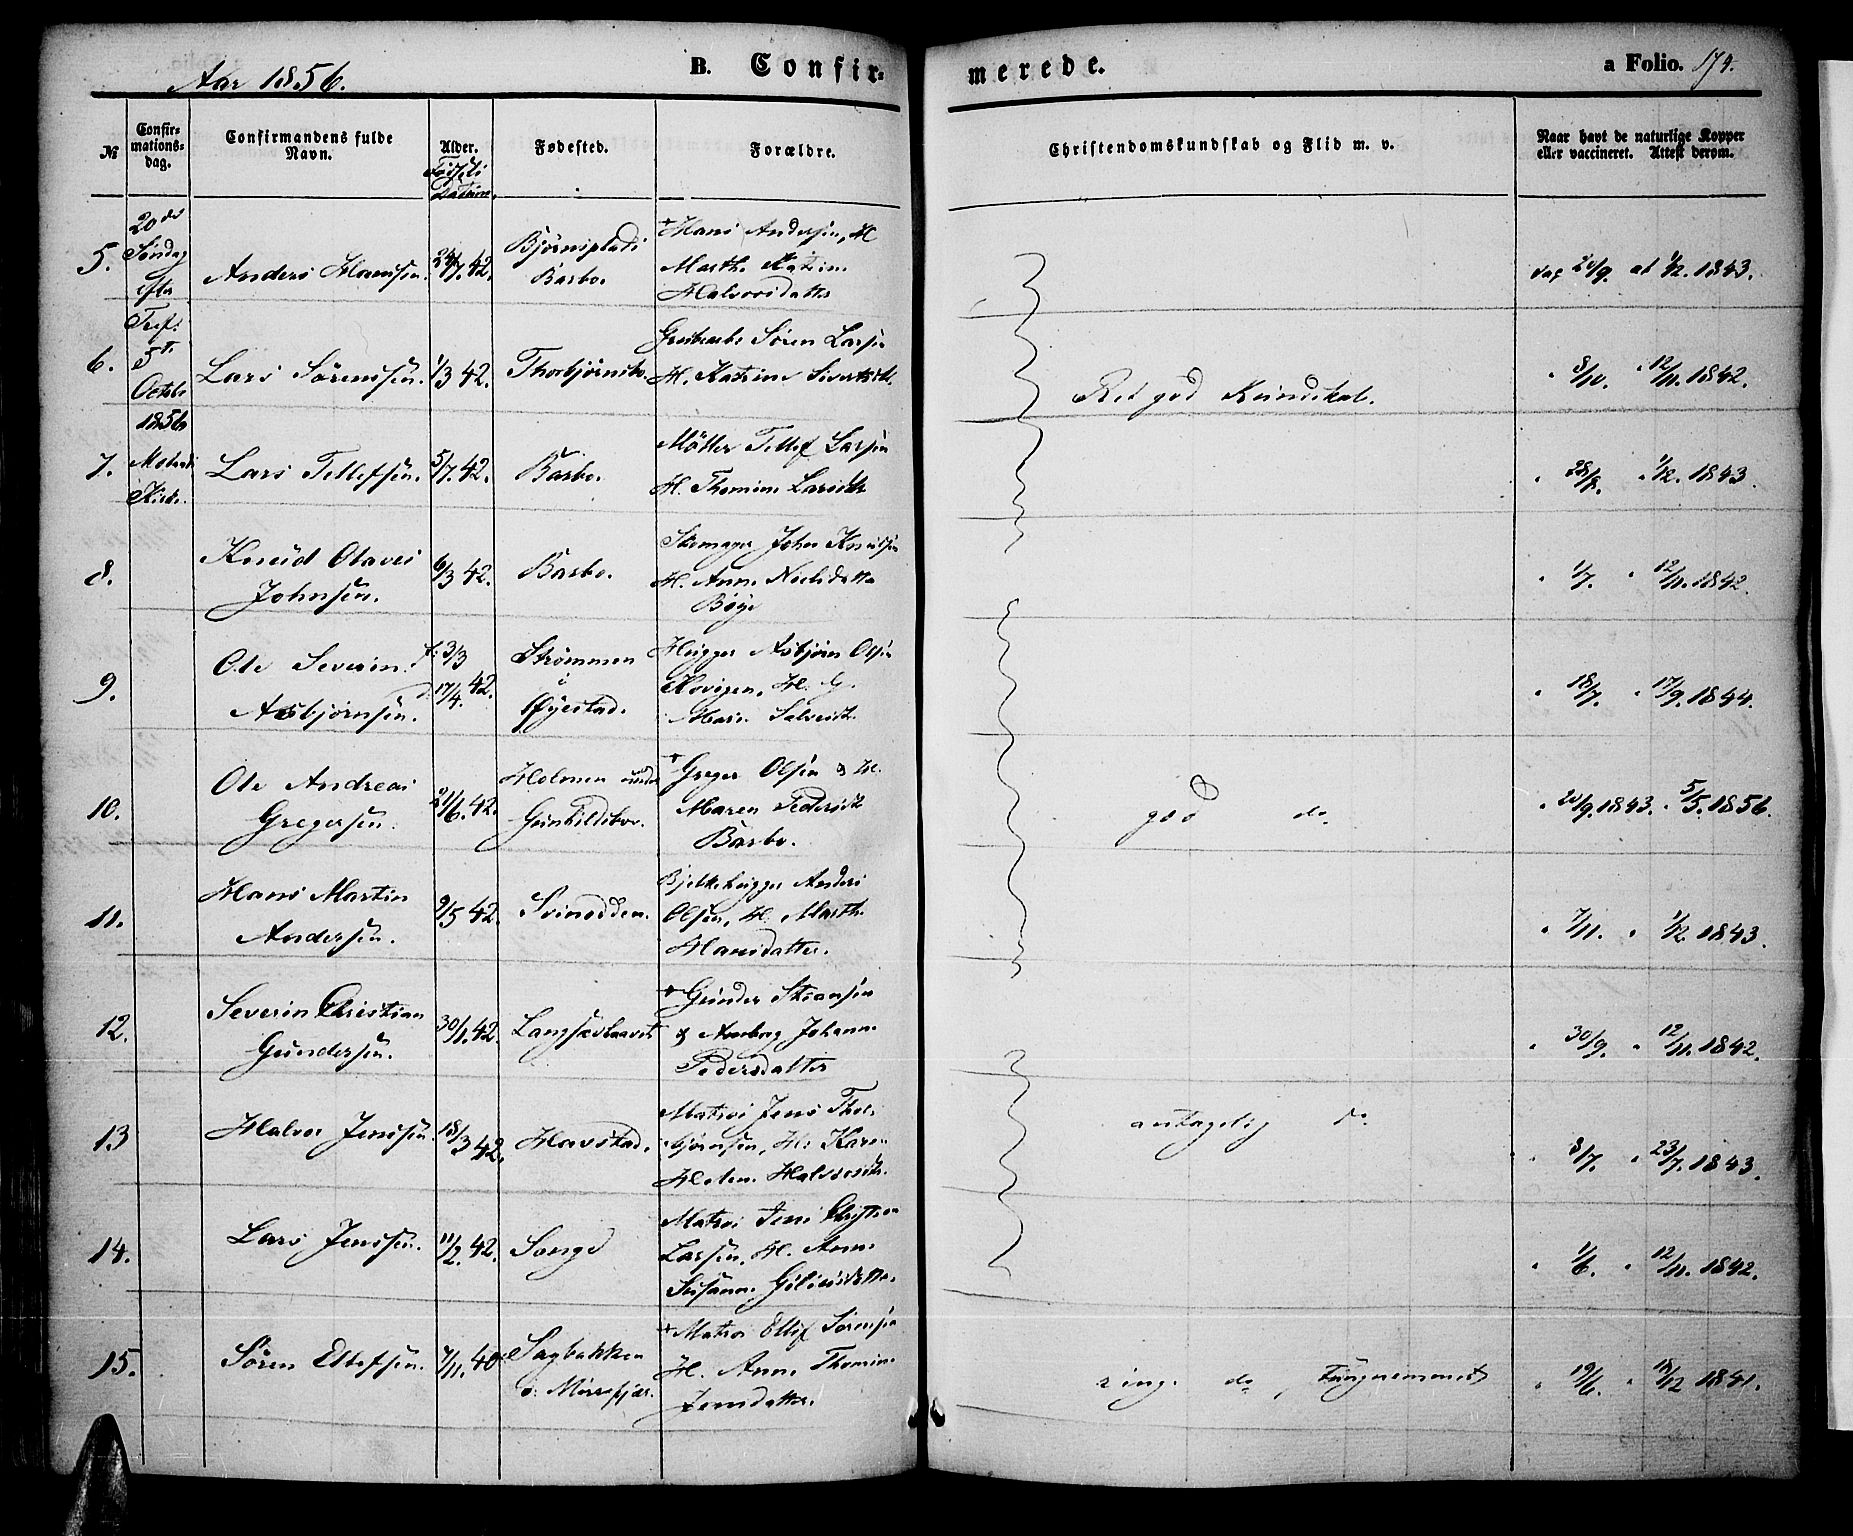 Aar 1856.
B. Confir-
merede.
a Folio. 174.
№
Confir-
mations-
dag.
Confirmandens fulde
Navn.
Alder.
Fødsels
Datum.
Fødested.
Forældre.
Christendomskundskab og Flid m. v.
Naar havt de naturlige Kopper
eller vaccineret. Attest derom.
20de
Søndag
efter
Tref:
5te
Octobr
1856
Kirke.
5.
Anders Hansen.
24/7. 42.
Bjørnsplads
Barbo.
+ Hans Andersen, H
Marthe Katrine
Halvorsdatter
vac 20/9. at 1/2. 1843.
6.
Lars Sørensen.
1/3 42.
Thorbjørnsbo.
Søren Larsen
H. Katrine Sivertsdtr.
Ret god Kundskab.
" 8/10. " 12/11. 1842.
7.
Lars Tellefsen.
5/7. 42.
Barbo.
Møller Tellef Larsen
H. Thomine Larsdtr
" 28/8. " 1/2. 1843.
8.
Knud Olaves
Johnsen.
6/3 42.
Barbo.
Skomager John Knudsen
H. Anne Nielsdatter
Bøye
" 1/7. " 12/11. 1842.
9.
Ole Severin
Asbjørnsen.
f. 3/3
d. 17/4. 42.
Strømmen
i
Øyestad.
Hugger Asbjørn Olsen
H. G.
Maria Salvesdtr
" 18/7. " 17/9. 1844.
10.
Ole Andreas
Gregersen.
21/6. 42.
Holmen under
Gunhildsboe.
+ Greger Olsen & H.
Maren Pedersdtr
Barbo.
god do
" 20/9. 1843. " 5/5. 1856.
11.
Hans Martin
Andersen.
9/5 42.
Svinodden.
Bjelkehugger Anders
Olsen, H. Marthe
Hansdatter.
" 7/11. " 1/2. 1843.
12.
Severin Christian
Gundersen.
30/1. 42.
+ Gunder
& Johanne
Pedersdatter
" 30/9. " 12/11. 1842.
13
Halvor Jenssen.
18/3 42.
Havstad.
Matros Jens Thor-
bjørnsen, H: Karen
Helene Halvorsdtr.
antagelig do
" 8/7. " 23/7. 1843.
14.
Lars Jenssen.
11/2. 42.
Songe
Matros Jens Christian
Larsen, H. Anne
Susanne
" 1/6. " 12/11. 1842.
15.
Søren Ellefsen.
7/11. 40
Sagbakken
+ Matros Ellef Sørensen
H. Anne Thomine
Jensdatter.
ringe do, Tungnemmet
" 19/6. " 18/12 1841.